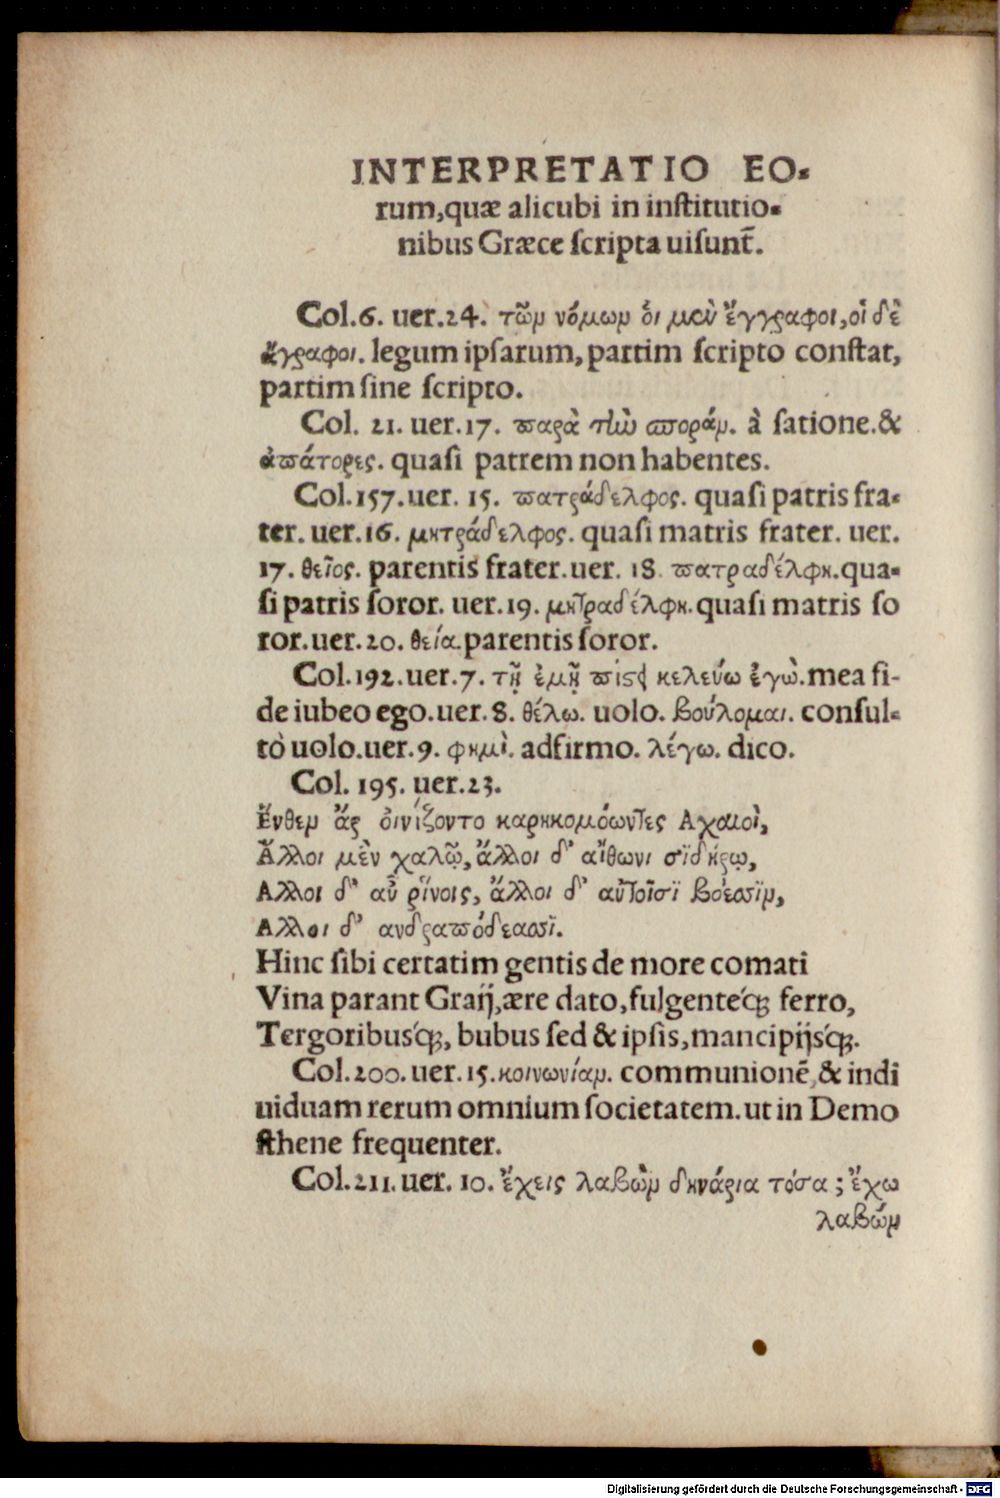 INTERPRETATIO EO-
rum, quæ alicubi in institutio-
nibus Græce scripta uisunt̃.
Col.6. uer.24. τῶν νόμων ὁι μεν ἔγγραφοι, οἱ δὲ
ἄγραφοι. legum ipsarum, partim scripto constat,
partim sine scripto.
Col. 21. uer.17. παρὰ τὴν σποράν. à satione. &
ἀπάτορες. quasi patrem non habentes.
Col.157. uer. 15. πατράδελφος. quasi patris fra-
ter. uer.16. μητράδελφος. quasi matris frater. uer.
17. θεῖος. parentis frater. uer. 18. πατραδέλφη. qua-
si patris soror. uer.19. μητραδέλφη. quasi matris so
ror. uer.20. θεία. parentis soror.
Col.192. uer.7. τῇ ἐμῇ πίςει κελεύω ἐγὼ. mea fi-
de iubeo ego. uer. 8. θέλω. uolo. βούλομαι. consul-
tò uolo. uer.9. φημὶ. adfirmo. λέγω. dico.
Col. 195. uer.23.
Ἔνθεν ἄρ οἰνίζοντο καρηκομόωντες Αχαιοὶ,
Ἄλλοι μὲν χαλῷ, ἄλλοι δ' αἴθωνι σϊδήρῳ,
Αλλοι δ' αὖ ῥίνοις, ἄλλοι δ' αὐτοῖσϊ βόεσσϊν,
Αλλοι δ' ανδραπόδεασσϊ.
Hinc sibi certatim gentis de more comati
Vina parant Graij, ære dato, fulgenteq́; ferro,
Tergoribusq́;, bubus sed & ipsis, mancipijsq́;.
Col.200. uer.15. κοινωνίαν. communionẽ, & indi
uiduam rerum omnium societatem. ut in Demo
sthene frequenter.
Col.211. uer. 10. ἔχεις λαβὼν δηνάρια τόσα; ἔχω
λαβών
Digitalisierung gefördert durch die Deutsche Forschungsgemeinschaft - DFG